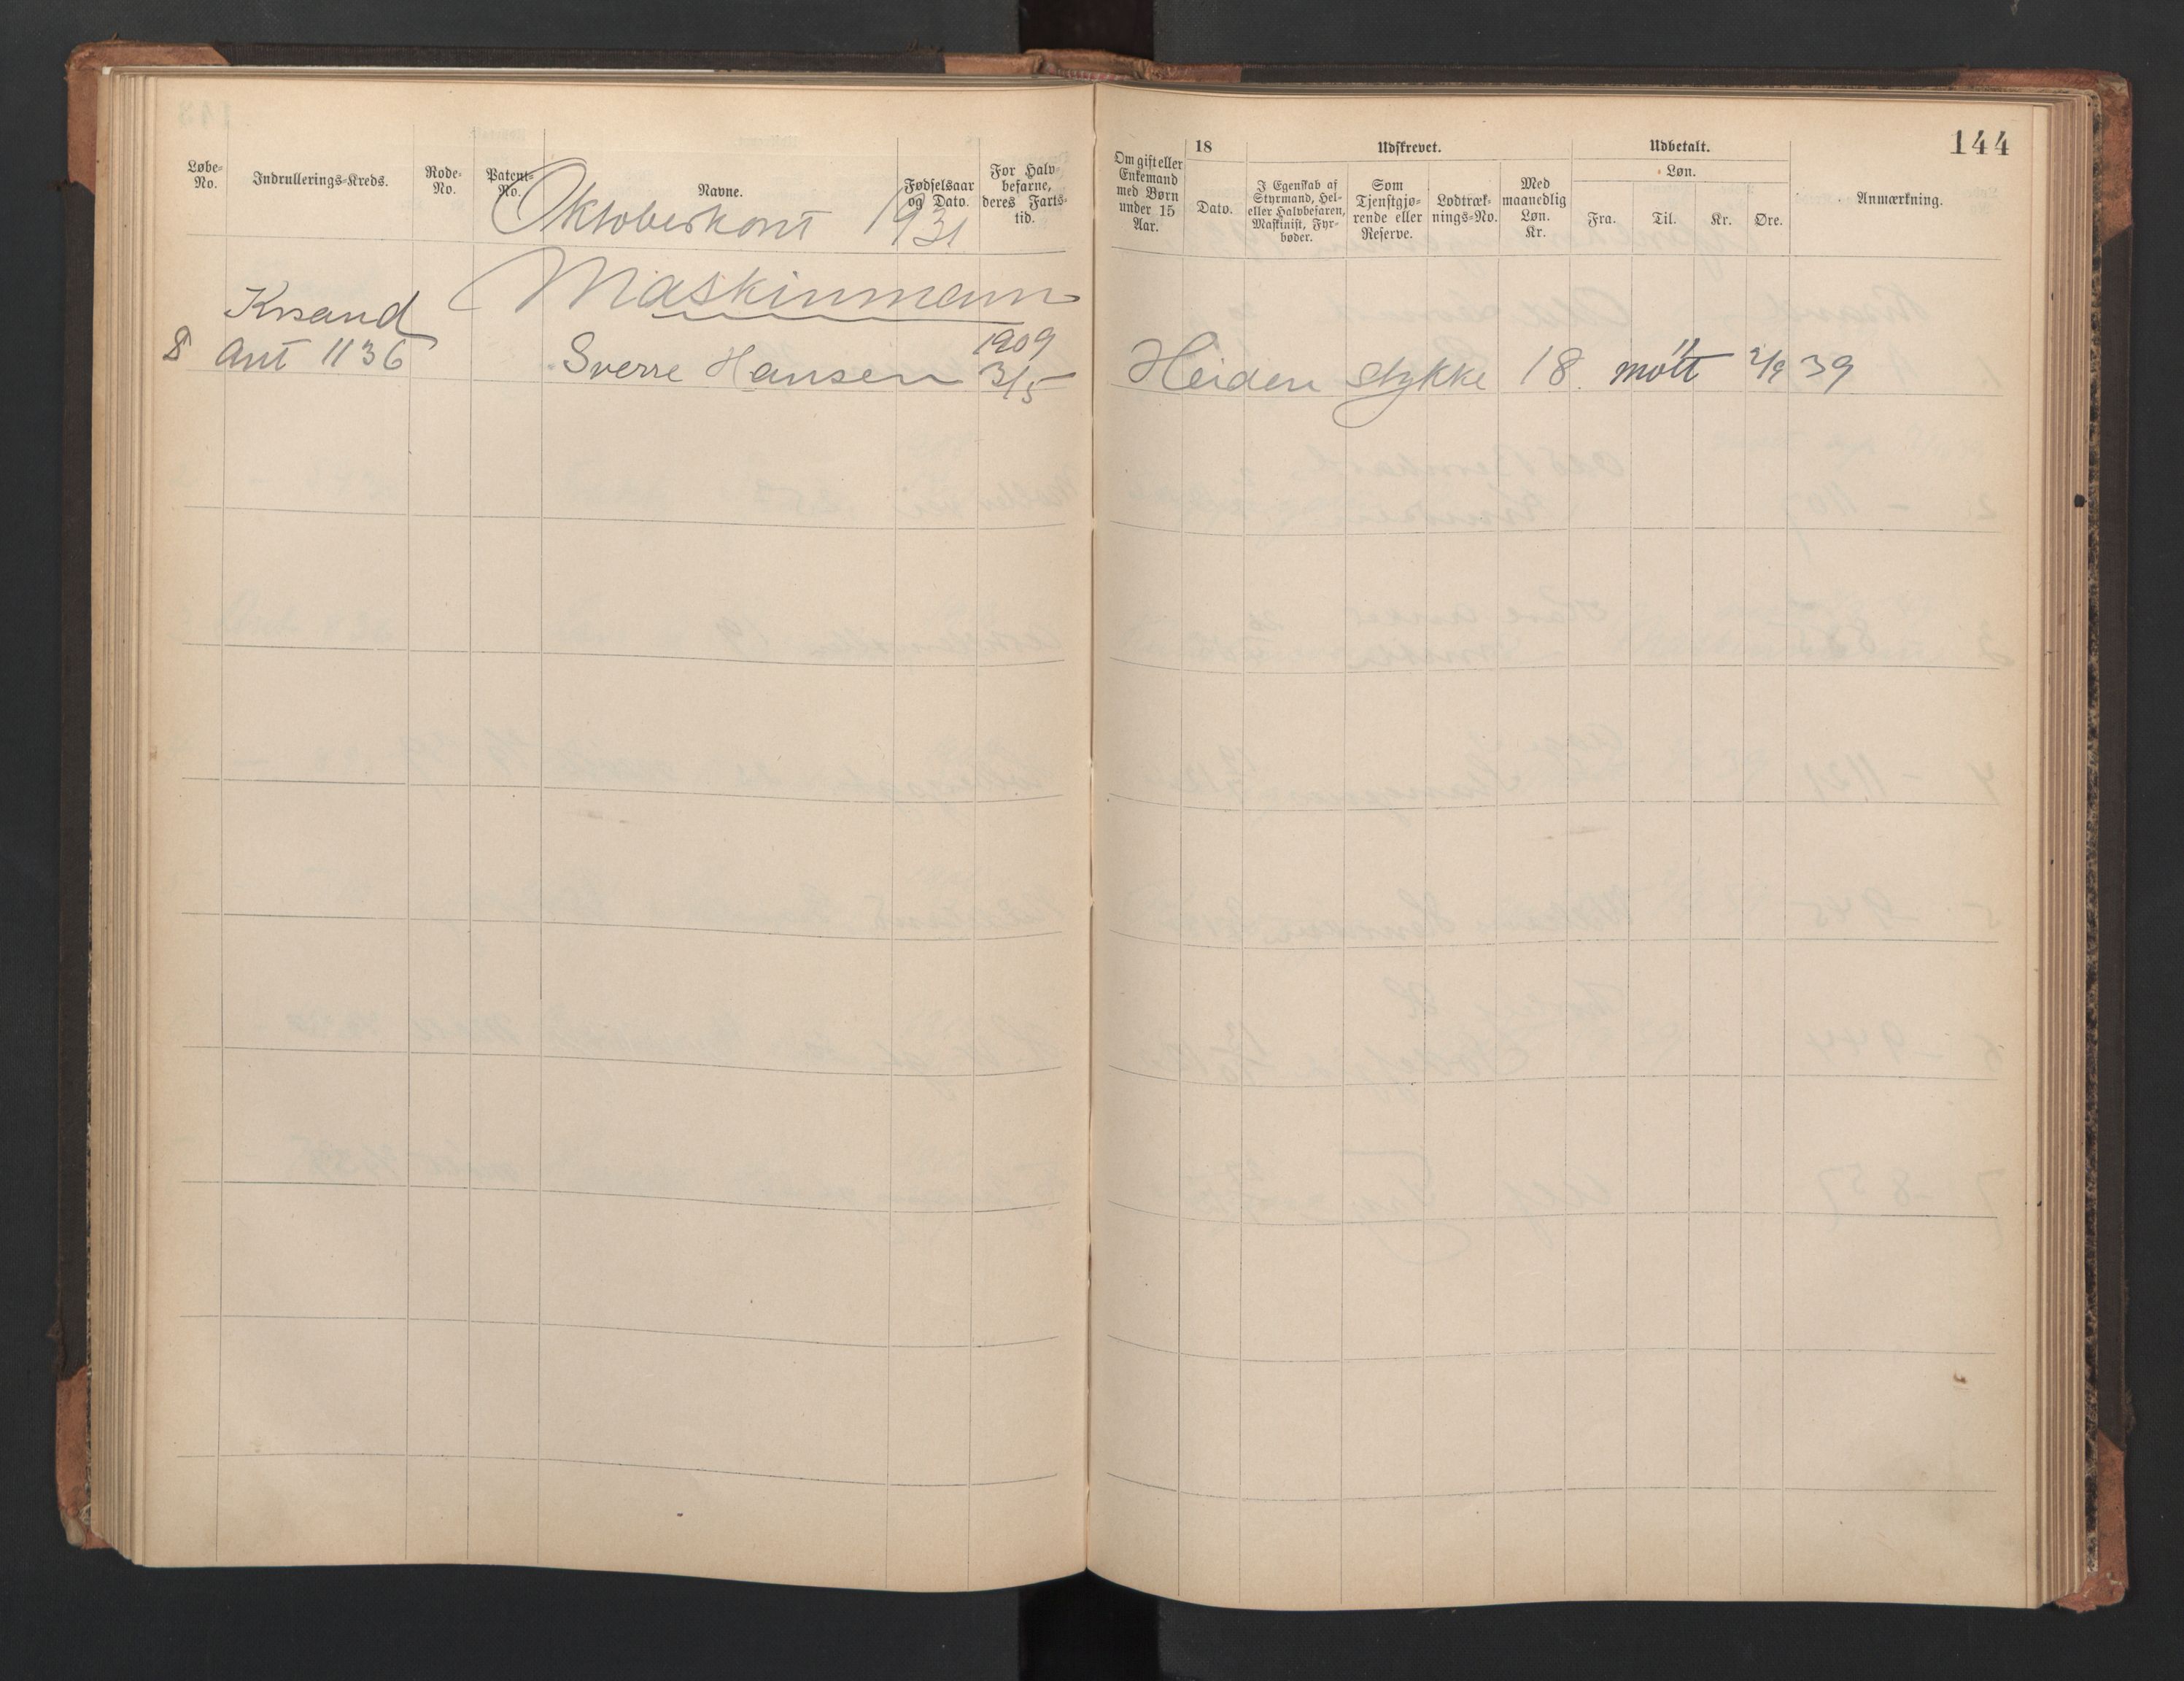 144
Løbe-
No.
Indrullerings-Kreds.
Rode-
No.
Patent-
No.
Navne.
Fødselsaar
og Dato.
For Halv-
befarne,
deres Farts-
tid.
Oktoberkont 1931
Maskinmann
Krsand
8 Ant 1136 Sverre Hansen 1909 3/5
Om gift eller
Enkemand
med Børn
under 15
Aar.
18
Dato.
Udskrevet.
I Egenskab af
Styrmand, Hel-
eller Halvbefaren,
Maskinist, Fyr-
bøder.
Som
Tjenstgjø-
rende eller
Reserve.
Lodtræk-
nings-No.
Med
maanedlig
Løn.
Kr.
Udbetalt.
Løn.
Fra.
Til.
Kr.
Øre.
Anmærkning.
Heiden stykke 18. møtt 2/9 39